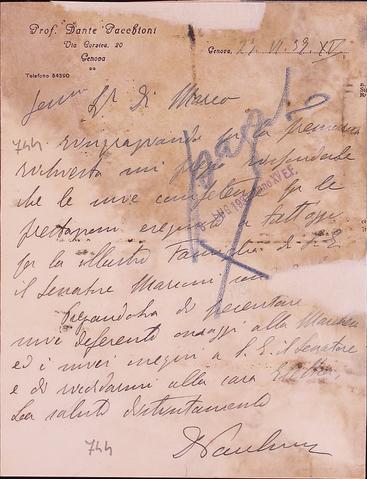 Prof. Dante Pacchioni
Via Corsica, 20
Genova
Telefono 54390
Genova,
Sig. Di Marco
744 ringraziando per la premurosa
richiesta mi pregio risponderle
che le mie competenze per le
prestazioni eseguite a tutt'oggi
per la illustre Famiglia di S. E.
il Senatore Marconi
Pregandola di presentare
miei deferenti omaggi alla Marchesa
ed i miei ossequi a S. E. il Senatore
e di ricordarmi alla cara
La saluto distintamente
744